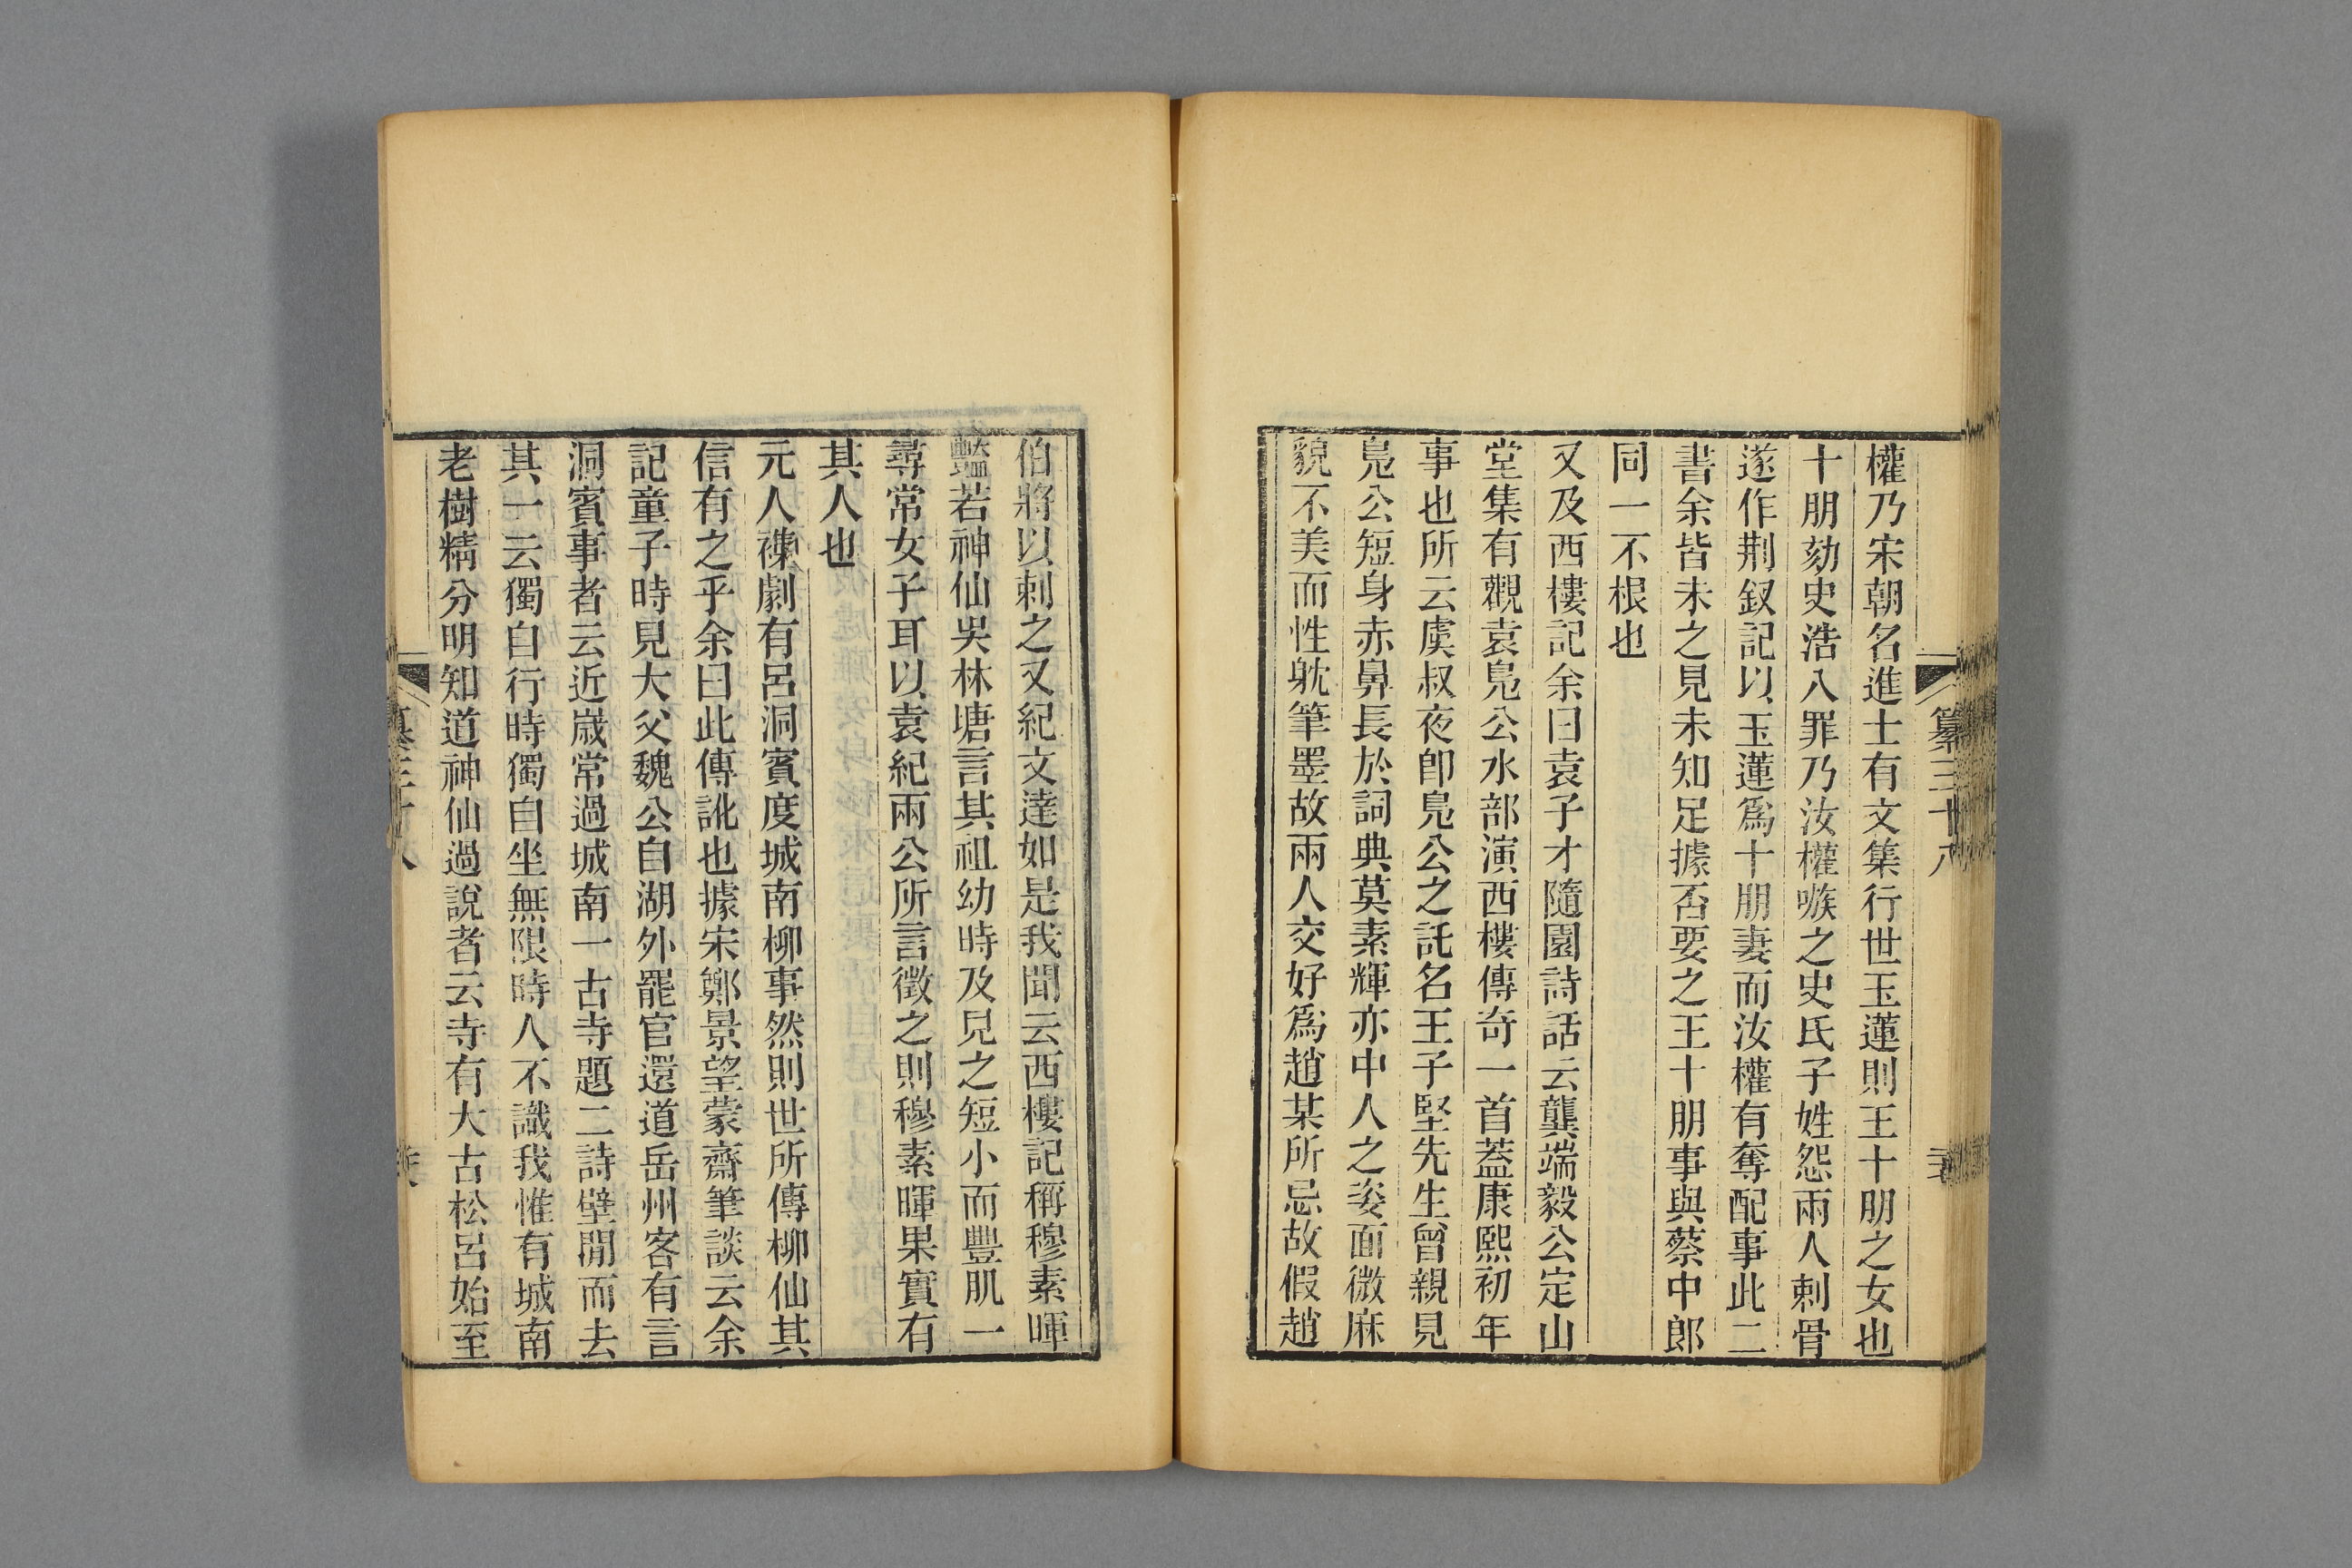 纂三十八
權乃宋朝名進士有文集行世玉蓮則王十朋之女也
十朋劾史浩八罪乃汝權嗾之史氏子姓怨兩人刺骨
遂作荆釵記以玉蓮爲十朋妻而汝權有奪配事此二
書余皆未之見未知足據否要之王十朋事與蔡中郎
同一不根也
又及西樓記余曰袁子才隨園詩話云龔端毅公定山
堂集有觀袁鳧公水部演西樓傳奇一首葢康熙初年
事也所云虞叔夜卽鳧公之託名王子堅先生曾親見
鳧公短身赤鼻長於詞典莫素輝亦中人之姿面微麻
貌不美而性躭筆墨故兩人交好爲趙某所忌故假趙
伯將以刺之又紀文達如是我聞云西樓記稱穆素暉
豔若神仙吳林塘言其祖幼時及見之短小而豐肌一
尋常女子耳以袁紀兩公所言徵之則穆素暉果實有
其人也
元人襍劇有呂洞賓度城南柳事然則世所傳柳仙其
信有之乎余曰此傳訛也據宋鄭景望蒙齋筆談云余
記童子時見大父魏公自湖外罷官還道岳州客有言
洞賓事者云近歲常過城南一古寺題二詩壁閒而去
其一云獨自行時獨自坐無限時人不識我惟有城南
老樹精分明知道神仙過說者云寺有大古松呂始至